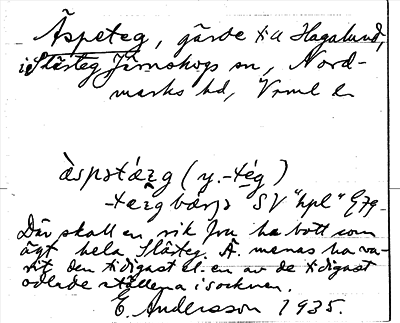 Äspeteg, gärde t. a Hagalund,
i Slåsteg Järnskogs sn, Nord-
marks hd, Vrml l.
àspətǽrg (y. -tég)
-tærgbærs SV "hpl" G79.
Där skall en rik fru ha bott som
ägt hela Slåsteg. Ä. menas ha va-
rit den tidigast el. en av de tidigast
odlade ställena i socknen.
E. Andersson 1935.